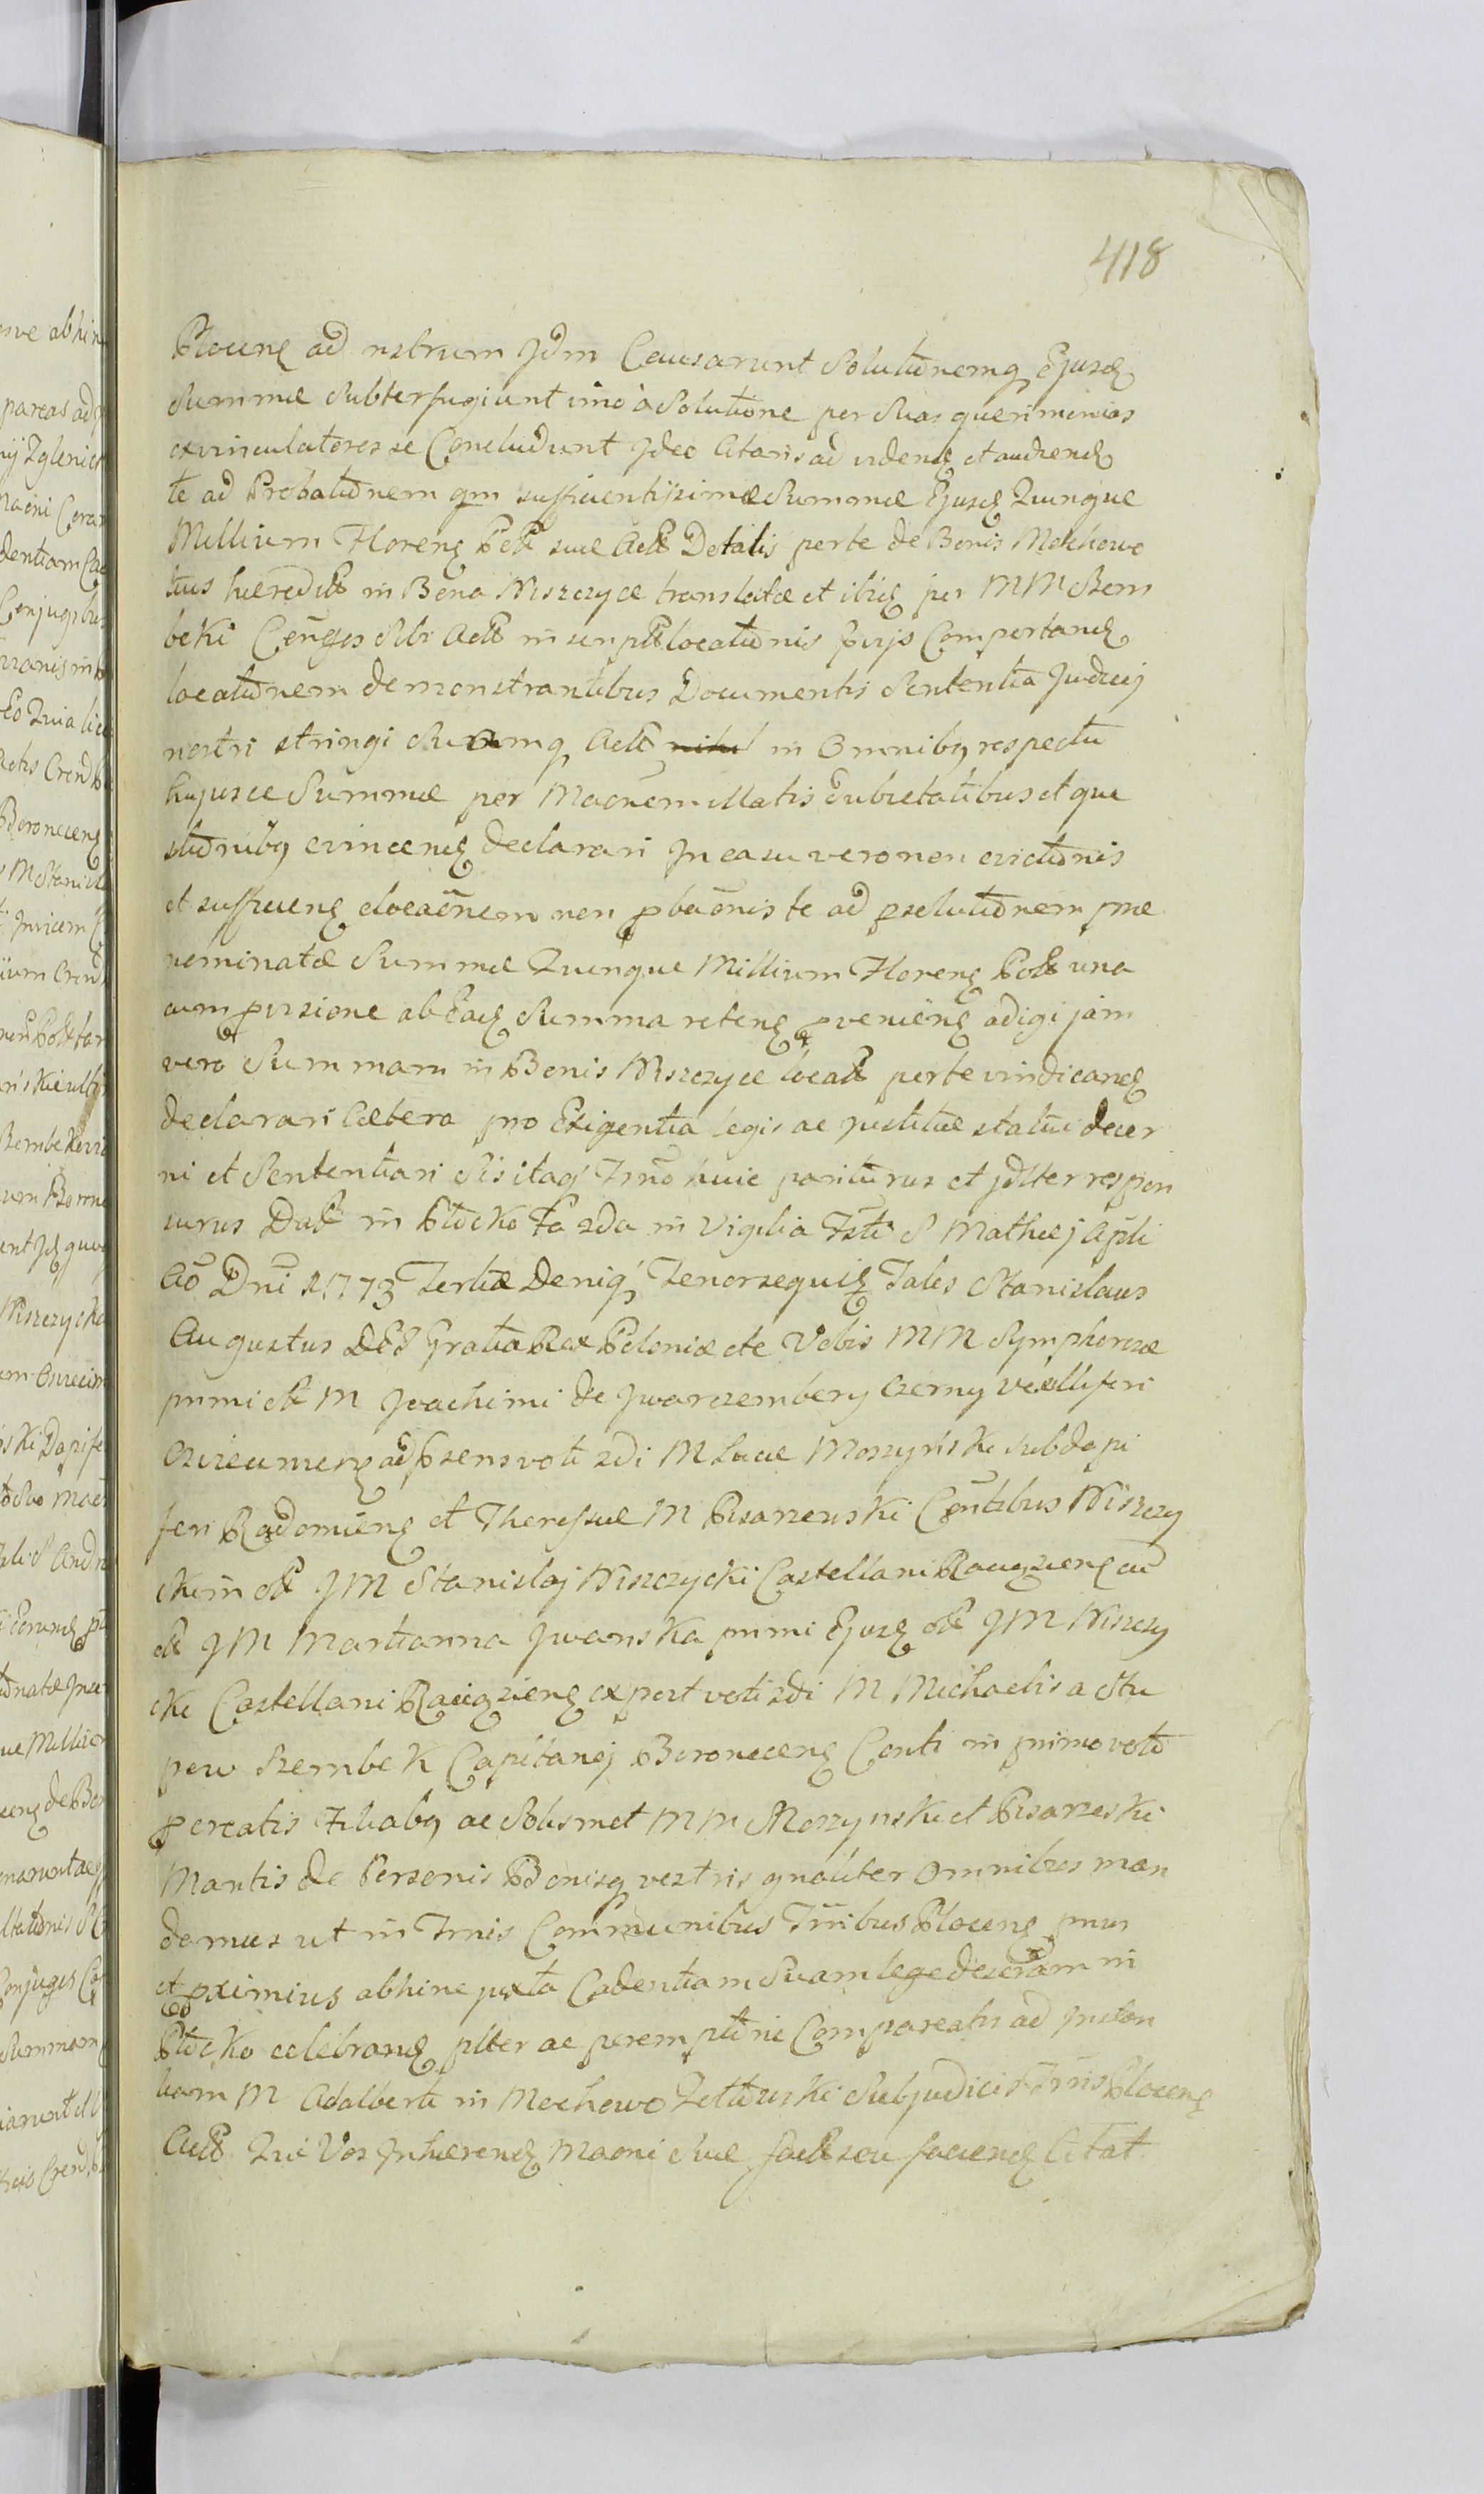 418
Plocens ad nstrum Jdm Causarunt Solutionemq Ejusd
Summæ Subterfugiunt imo à Solutione per Suas querimonias
exvinculatores se Concludunt Jdeo Citaris ad vidend et audiend
te ad Probationem qm sufficientissimæ Summæ Ejusd Quinque
Millium Floren Pol suæ Act Dotalis per te de Bonis Mochowo
tuis hæredit in Bona Niszczyce translatæ et ibid per MM Szem
beki Conjges Sibi Act inscript locationis prijs Comportand
locationem demonstrantibus Documentis Sententia Judicij
nostri stringi Suamq Act in Omnibq respectu
hujusce Summæ per Macnem illatis Dubietatibus et quæ
stionibq evincend declarari Jn casu vero non evictionis
et sufficien elocacnem non pbacnis te ad psolutionem præ
nominatæ Summæ Quinque Millium Floren Pol una
cum provisione ab Ead Summa reten pvenien adigi jam
vero Summam in Bonis Niszczyce locat per te vindicand
declarari Cætera pro Exigentia legis ac justitiæ statui decer
ni et Sententiari Sis itaq Trno huic pariturus et jdlter respon
surus Dat in Plocko Fa 2da in Vigilia Fsti S Mathæj Apli
Ao Dni 1773 Tertiæ Deniq Tenor sequit Talis Stanislaus
Augustus Dei Gratia Rex Poloniæ etc Vobis MM Symphorosæ
primi ol M Joachimi de Jwarczembery Czerny vexilliferi
Oswiecimen ad Psens voti 2di M Lucæ Moszyński Subdapi
feri Radomien et Theressæ M Pisarzewski Contibus Niszczy
ckim ol JM Stanislaj Niszczycki Castellani Raciązien cu
ol JM Martianna Jwanska primi Ejusd ol JM Niszczy
cki Castellani Raciązien ex post voti 2di M Michaelis a Stu
pow Szembek Capitanej Boroncen Conti in primo voto
pcreatis Filiabq ac Solismet MM Moszynski et Pisarzeski
Maritis de Personis Bonisq vestris gnaliter Omnibus man
damus ut in Trnis Communibus Trribus Plocens prius
et pximius abhinc juxta Cadentiam Suam lege descriptam in
Plocko celebrand plter ac peremptorie Compareatis ad Jnstan
tiam M Adalberti in Mochowo Zottowski Subjudicis Trris Plocen
Act Qui Vos Jnhærend Macni Suæ fact seu faciend Citat